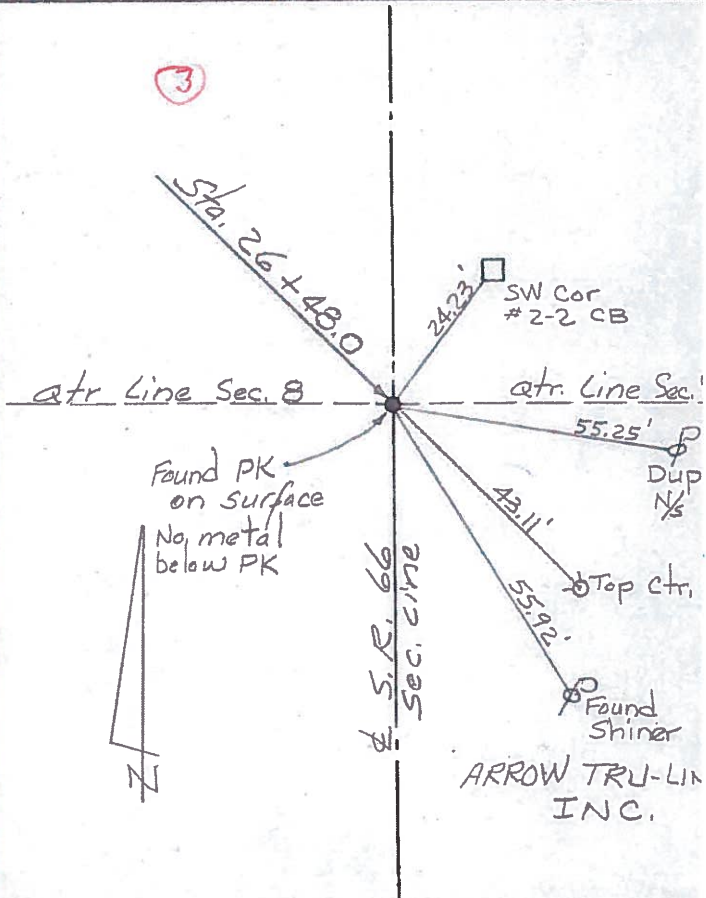 3
Sta. 26 + 48.0
24.23'
SW Cor
#2-2 CB
Qtr Line Sec. 8
Qtr. Line Sec.
55.25'
Dup
N/S
Found PK
on surface
No metal
below PK
43.11'
Top Ctr.
55.92'
℄ S.R. 66
Sec. Line
Found
Shiner
N
ARROW TRU-LIN
INC.